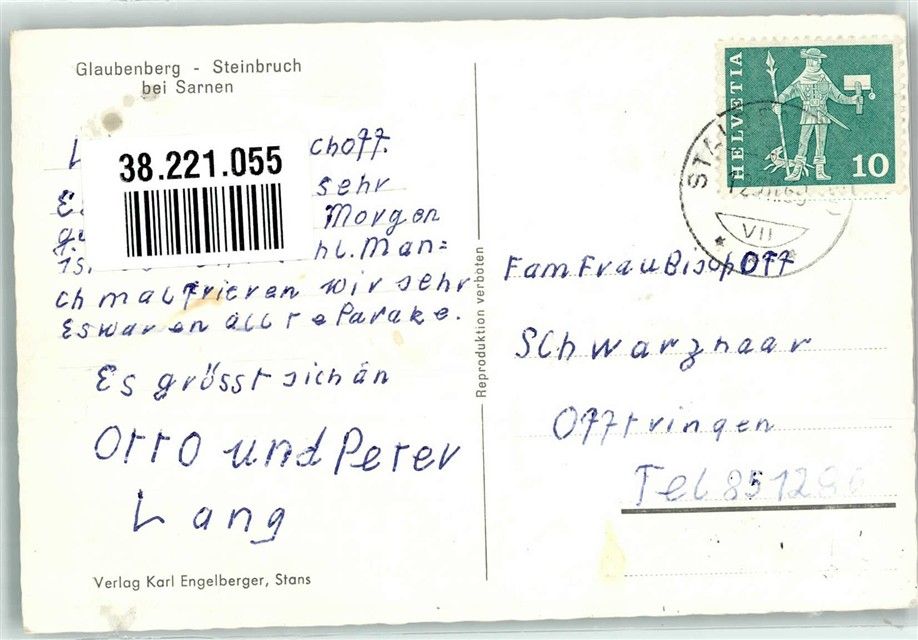 Glaubenberg - Steinbruch
bei Sarnen
38.221.055
choff.
sehr
Morgen
hl. Man=
chmal frieren wir sehr
Es waren alle Parake.
Es grösst sich än
Otto und Peter
Lang
Verlag Karl Engelberger, Stans
Reproduktion verboten
HELVETIA
10
VII
Fam. Frau Bischoff
Schwarzhaar
Offtringen
Tel 851286